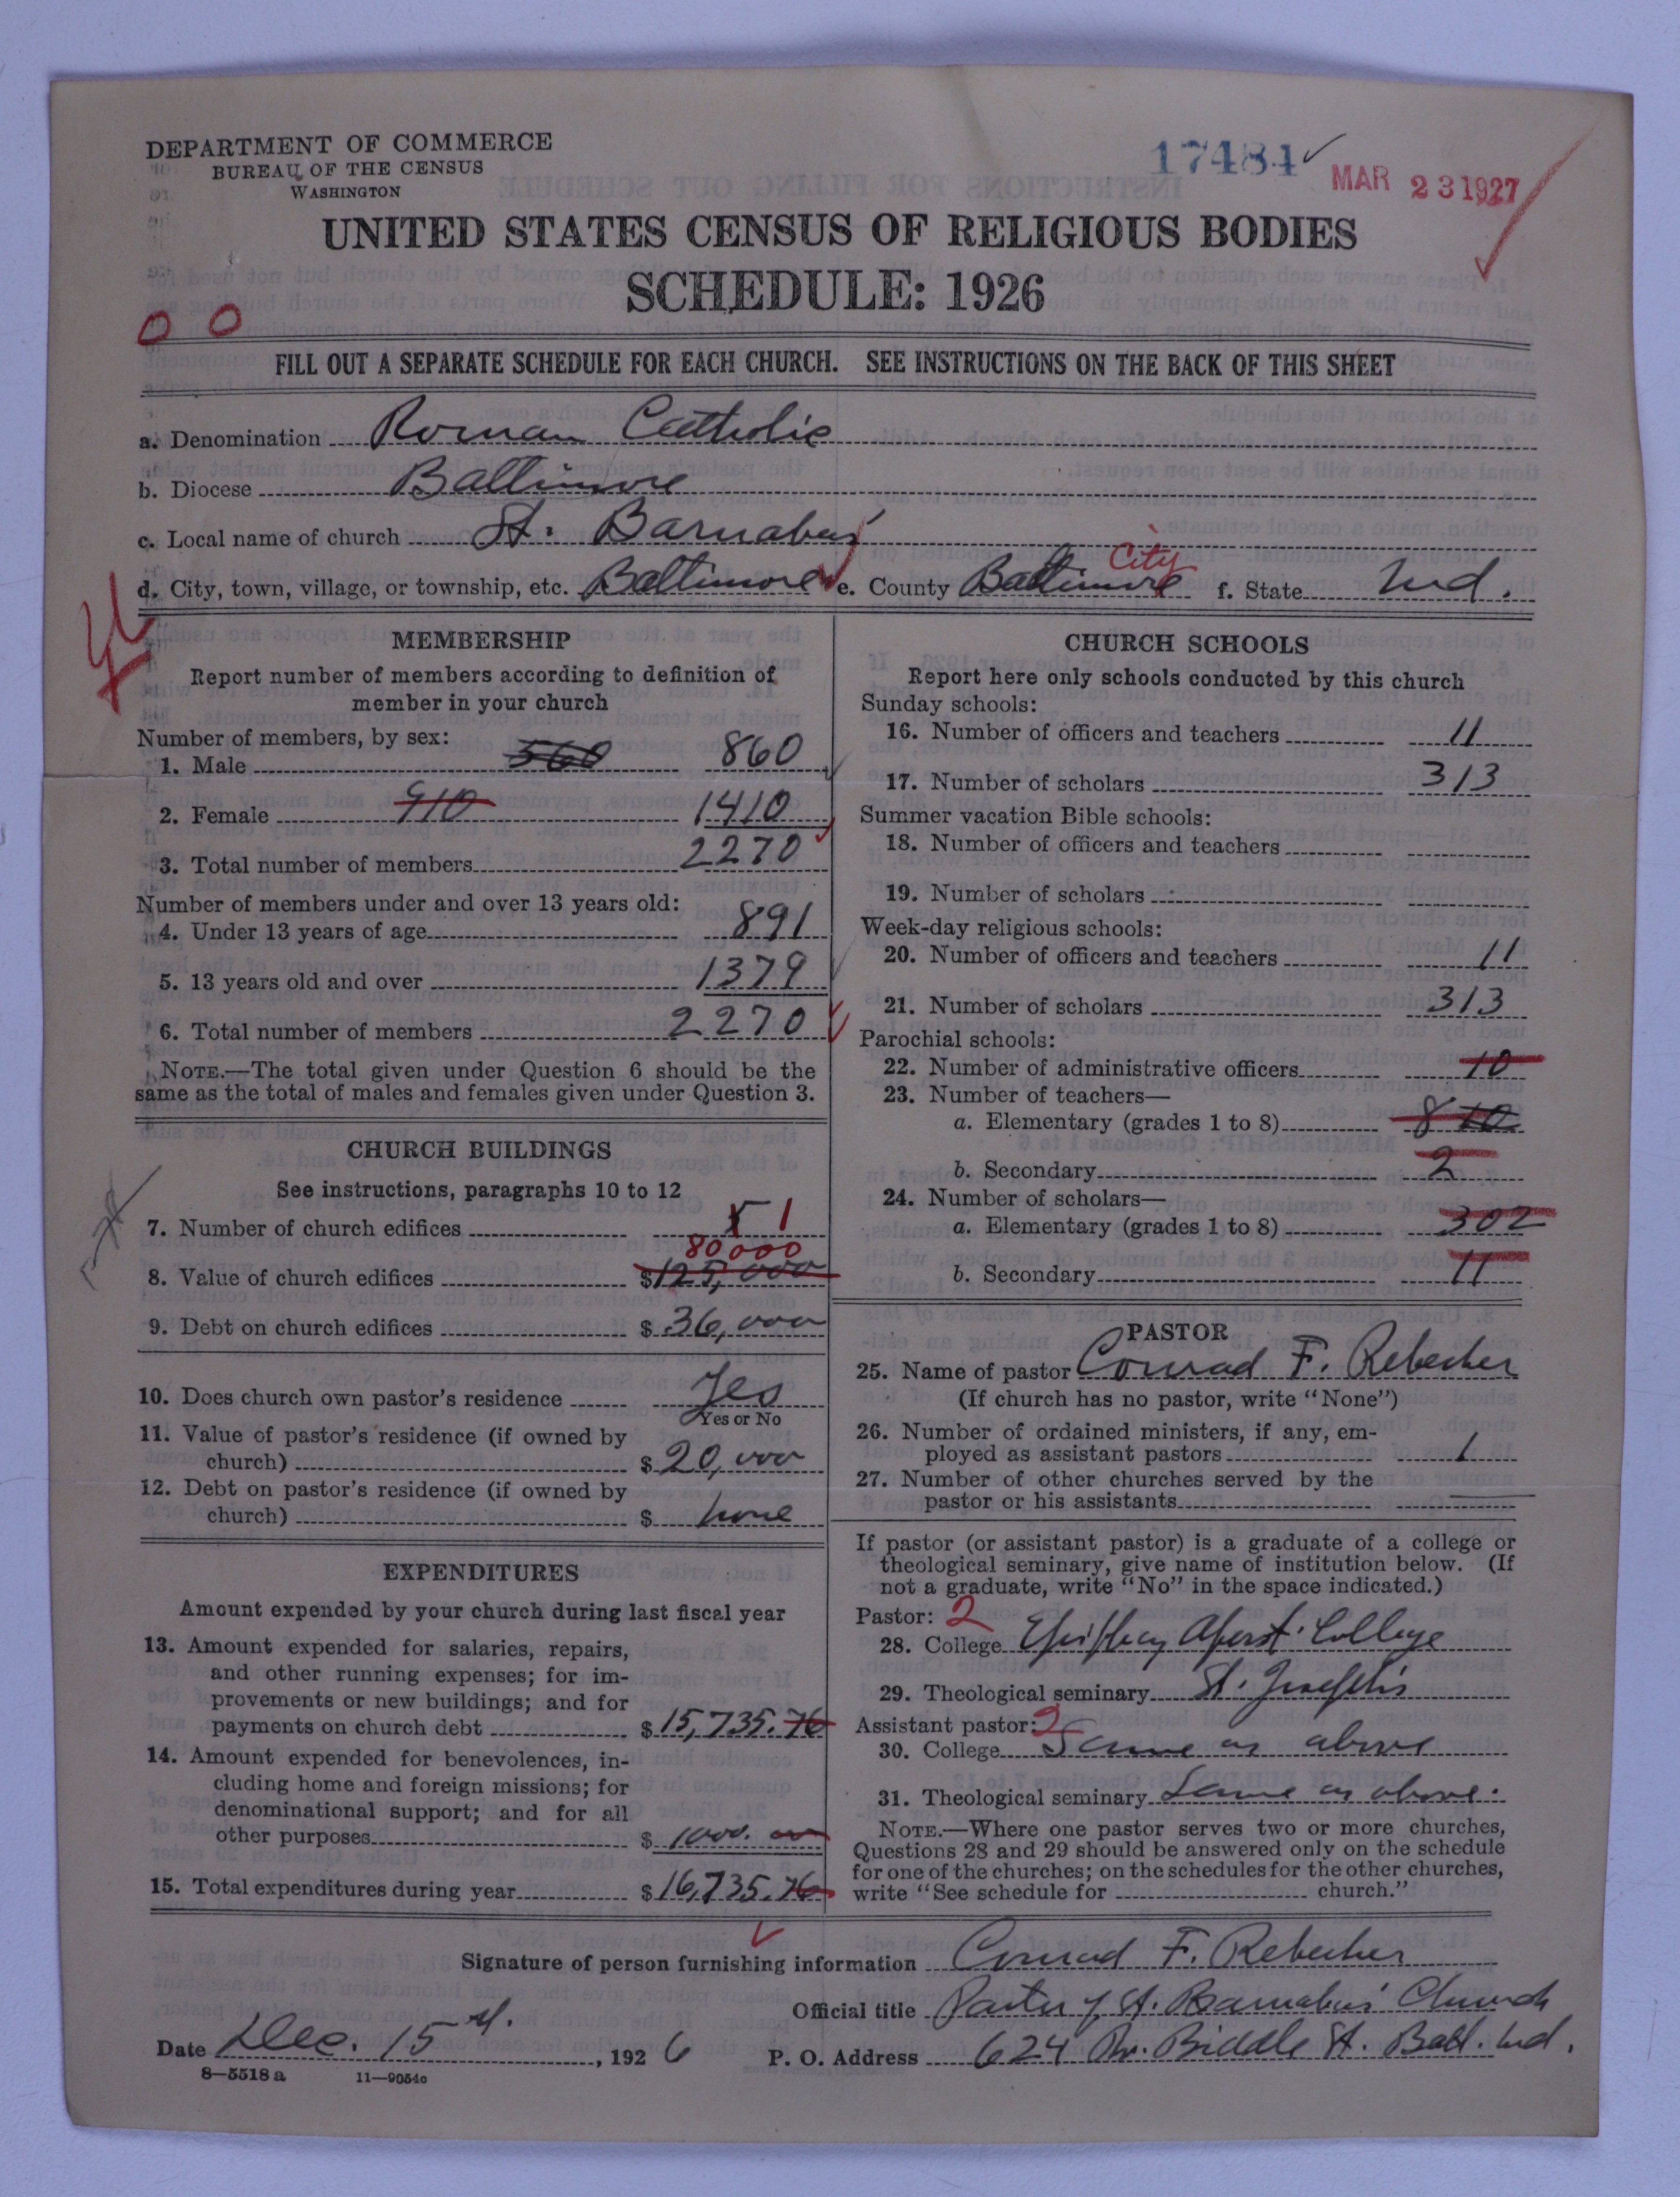 DEPARTMENT OF COMMERCE
BUREAU OF THE CENSUS
WASHINGTON
17484 ✓
MAR 23 1927
UNITED STATES CENSUS OF RELIGIOUS BODIES
SCHEDULE: 1926
0 0
FILL OUT A SEPARATE SCHEDULE FOR EACH CHURCH. SEE INSTRUCTIONS ON THE BACK OF THIS SHEET
a. Denomination Roman Catholic
b. Diocese Baltimore
c. Local name of church St. Barnabas'
d. City, town, village, or township, etc. Baltimore e. County Baltimore City f. State Md.
MEMBERSHIP
Report number of members according to definition of
member in your church
Number of members, by sex:
1. Male 560 860
2. Female 910 1410
3. Total number of members 2270
Number of members under and over 13 years old:
4. Under 13 years of age 891
5. 13 years old and over 1379
6. Total number of members 2270
NOTE.—The total given under Question 6 should be the
same as the total of males and females given under Question 3.
CHURCH BUILDINGS
See instructions, paragraphs 10 to 12
7. Number of church edifices 1
80000
8. Value of church edifices $125,000
9. Debt on church edifices $36,000
10. Does church own pastor's residence Yes
Yes or No
11. Value of pastor's residence (if owned by
church) $20,000
12. Debt on pastor's residence (if owned by
church) $ none
EXPENDITURES
Amount expended by your church during last fiscal year
13. Amount expended for salaries, repairs,
and other running expenses; for im-
provements or new buildings; and for
payments on church debt $15,735.76
14. Amount expended for benevolences, in-
cluding home and foreign missions; for
denominational support; and for all
other purposes $1000. 00
15. Total expenditures during year $16,735.76
CHURCH SCHOOLS
Report here only schools conducted by this church
Sunday schools:
16. Number of officers and teachers 11
17. Number of scholars 313
Summer vacation Bible schools:
18. Number of officers and teachers
19. Number of scholars
Week-day religious schools:
20. Number of officers and teachers 11
21. Number of scholars 313
Parochial schools:
22. Number of administrative officers 10
23. Number of teachers—
a. Elementary (grades 1 to 8) 8 10
b. Secondary 2
24. Number of scholars—
a. Elementary (grades 1 to 8) 302
b. Secondary 11
PASTOR
25. Name of pastor Conrad F. Rebesher
(If church has no pastor, write "None")
26. Number of ordained ministers, if any, em-
ployed as assistant pastors 1
27. Number of other churches served by the
pastor or his assistants
If pastor (or assistant pastor) is a graduate of a college or
theological seminary, give name of institution below. (If
not a graduate, write "No" in the space indicated.)
Pastor: 2
28. College Epiphany Apost. College
29. Theological seminary St. Joseph's
Assistant pastor: 2
30. College Same as above
31. Theological seminary Same as above.
NOTE.—Where one pastor serves two or more churches,
Questions 28 and 29 should be answered only on the schedule
for one of the churches; on the schedules for the other churches,
write "See schedule for church."
Signature of person furnishing information Conrad F. Rebesher
Official title Pastor of St. Barnabas' Church
Date Dec. 15th, 1926 P. O. Address 624 W. Biddle St. Balt. Md.
8—5518 a 11—9054c